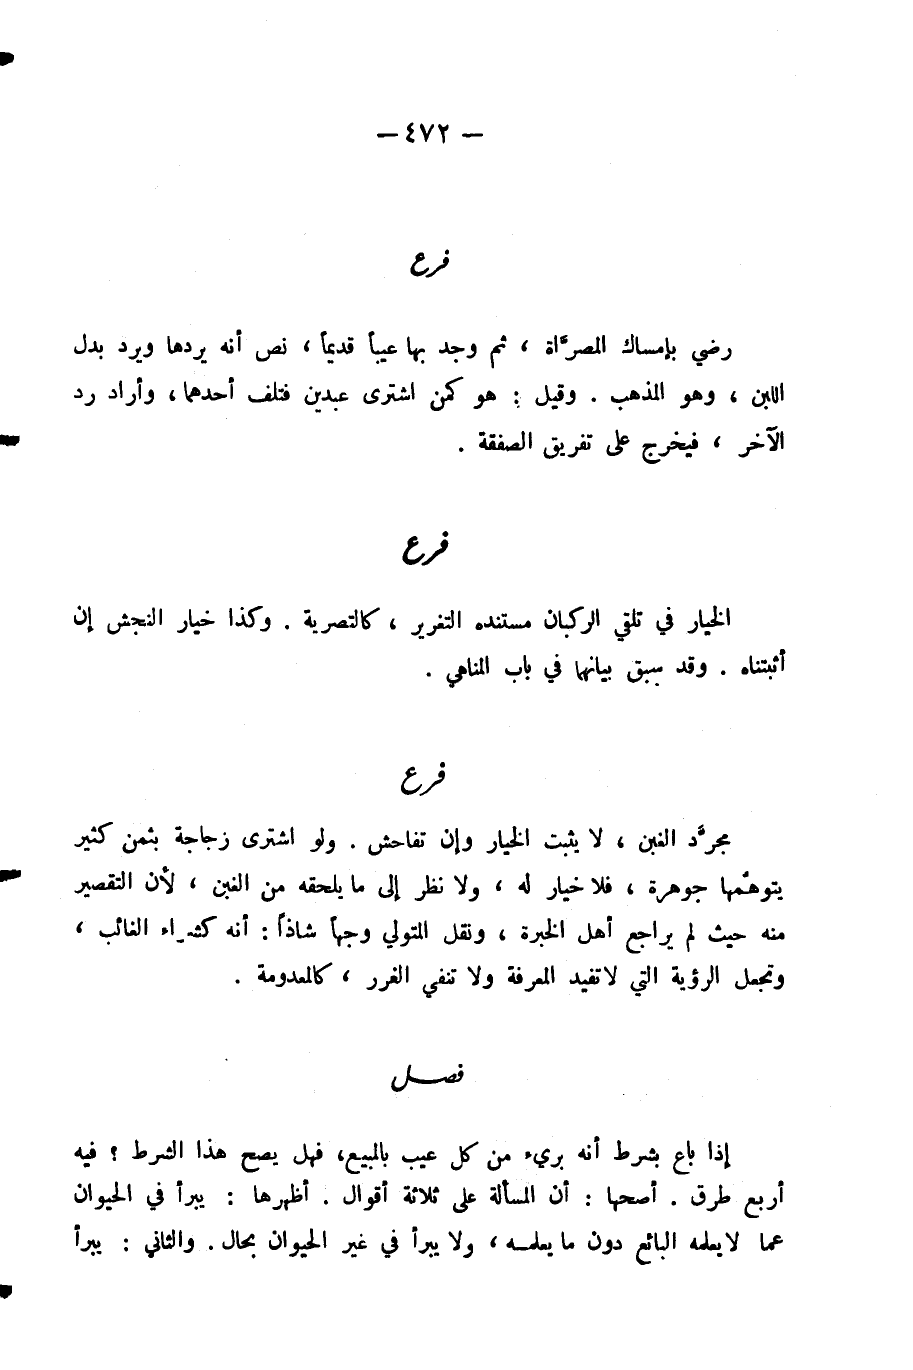 — ٤٧٢ —
فرع
رضي بإمساك المصرَّاة ، ثم وجد بها عيباً قديماً ، نص أنه يردها ويرد بدل
اللبن ، وهو المذهب . وقيل : هو كمن اشترى عبدين فتلف أحدهما ، وأراد رد
الآخر ، فيخرج على تفريق الصفقة .
فرع
الخيار في تلقي الركبان مستنده التغرير ، كالتصرية . وكذا خيار النجش إن
أثبتناه . وقد سبق بيانها في باب المناهي .
فرع
مجرَّد الغبن ، لا يثبت الخيار وإن تفاحش . ولو اشترى زجاجة بثمن كثير
يتوهَّمها جوهرة ، فلا خيار له ، ولا نظر إلى ما يلحقه من الغبن ، لأن التقصير
منه حيث لم يراجع أهل الخبرة ، ونقل المتولي وجهاً شاذاً : أنه كشراء الغائب ،
وتجعل الرؤية التي لا تفيد المعرفة ولا تنفي الغرر ، كالمعدومة .
فصل
إذا باع بشرط أنه بريء من كل عيب بالمبيع، فهل يصح هذا الشرط ؟ فيه
أربع طرق . أصحها : أن المسألة على ثلاثة أقوال . أظهرها : يبرأ في الحيوان
عما لا يعلمه البائع دون ما يعلمه ، ولا يبرأ في غير الحيوان بحال . والثاني : يبرأ